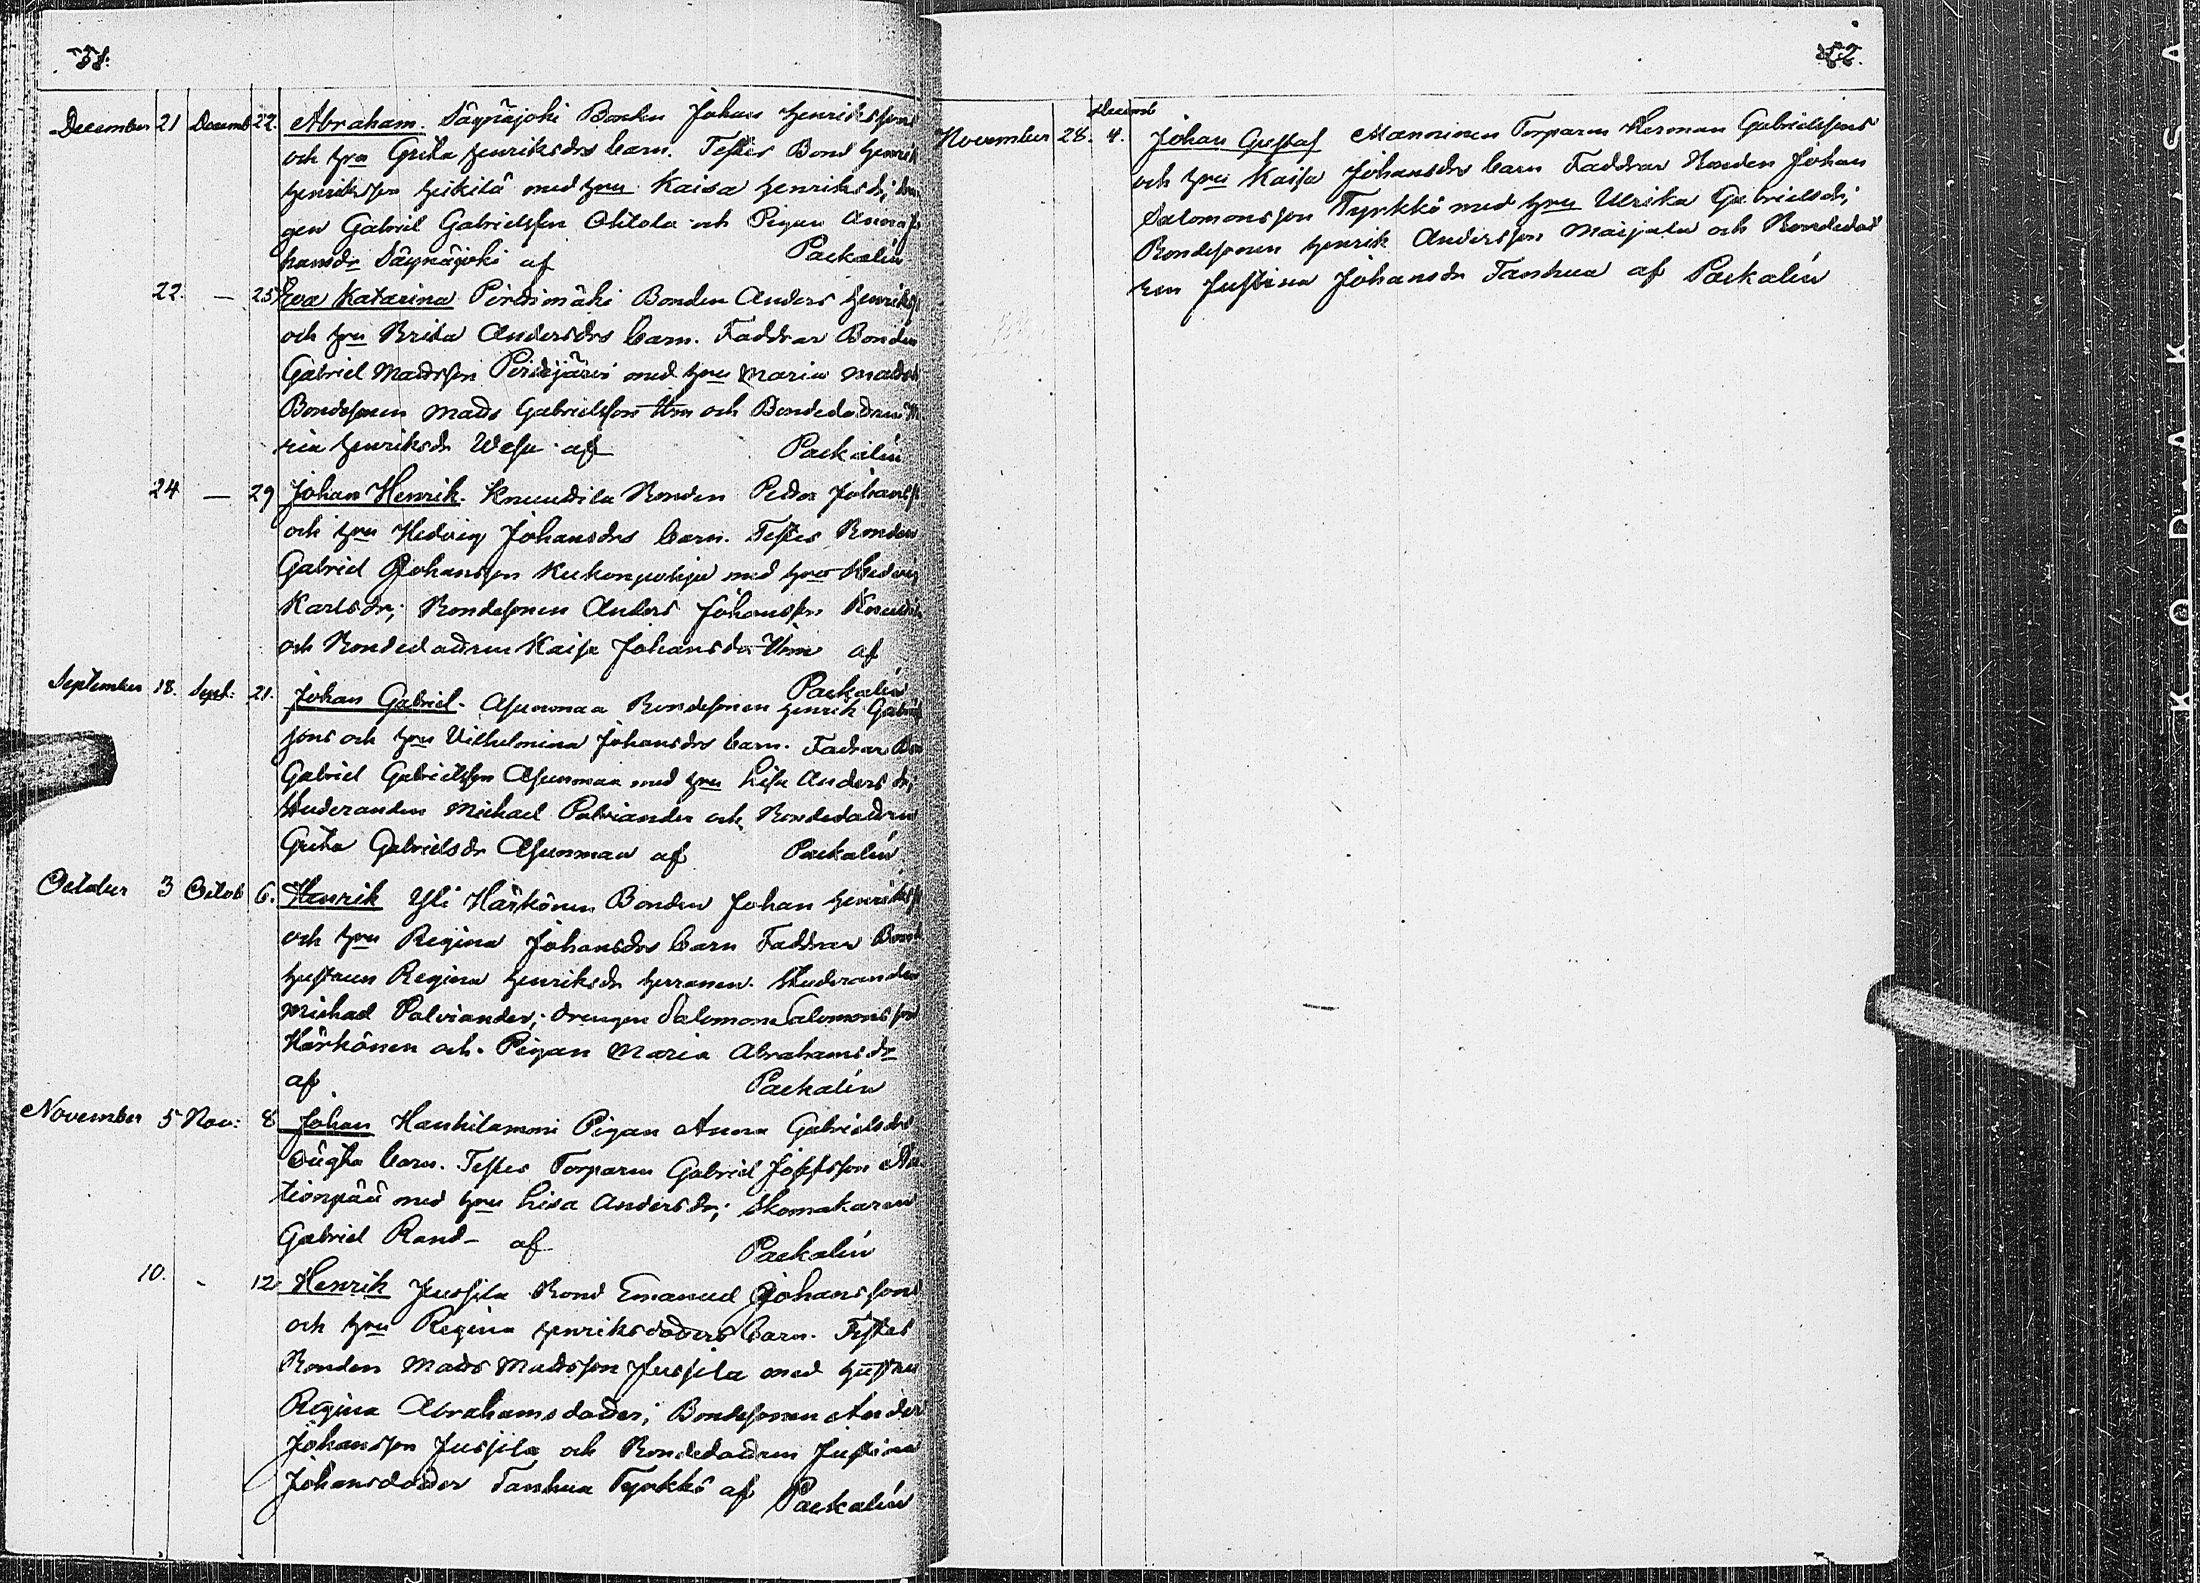 51.
December 21 Decemb 22. Abraham. Säynäjoki Bonden Johan Henrikssons
och hru Greta Henriksdrs barn. Testes Bond Henrik
Henriksson Heikilä med hru Kaisa Henriksdr; drän
gen Gabriel Gabrielsson Ollila och Pigan Anna Jo
hansdr Säynäjoki af Packalén
22. — 25 Eva Katarina Pirttimäki Bonden Anders Henrikss
och hru Brita Andersdrs barn. Faddrar Bonden
Gabriel Mattsson Peräjärvi med hru Maria Mattsd
Bondesonen Matts Gabrielsson ibm och Bondedottren M
ria Henriksdr Wesa af Packalén
24 — 29 Johan Henrik. Knuuttila Bonden Petter Johanss
och hru Hedvig Johansdrs barn. Testes Bonden
Gabriel Johansson Kukonpohja med hru Hedvig
Karlsdr; Bondesonen Anders Johansson Knuutti
och Bondedottren Kaisa Johansdr ibm af
Packalén
September 18. Sept: 21. Johan Gabriel. Asunmaa Bondesonen Henrik Gabriels
sons och hru Vilhelmina Johansdrs barn. Fadrar Bon
Gabriel Gabrielsson Asunmaa med hru Lisa Andersdr;
Studeranden Michael Palviander och Bondedottren
Greta Gabrielsdr Asunmaa af Packalén
October 3 Octob 6. Henrik Yli Härkönen Bonden Johan Henrikss
och hru Regina Johansdrs barn Faddrar Bond
hustrun Regina Henriksdr Herranen. Studeranden
Michael Palviander; drengen Salomon Salomonsson
Härkönen och Pigan Maria Abrahamsdr
af Packalén
November 5 Nov: 8 Johan Hankilamoni Pigan Anna Gabrielsdrs
oägta barn. Testes Torparen Gabriel Josefsson
tionpää med hru Lisa Andersdr; Skomakaren
Gabriel Rand- af Packalén
10. - 12 Henrik Jussila Bond Emanuel Johanssons
och hru Regina Henriksdotters barn. Testes
Bonden Matts Mattsson Jussila med hustru
Regina Abrahamsdotter; Bondesonen Ander
Johansson Jussila och Bondedottren Justina
Johansdotter Tanhua Tyrkkö af Packalén
52.
November 28. Decemb 4. Johan Gustaf Manninen Torparen Herman Gabrielssons
och hru Kaisa Johansdrs barn Faddrar Bonden Johan
Salomonsson Tyrkkö med hru Ulrika Gabrielsdr;
Bondesonen Henrik Andersson Marjala och Bondedot
ren Justina Johansdr Tanhua af Packalén
KODAK S.A